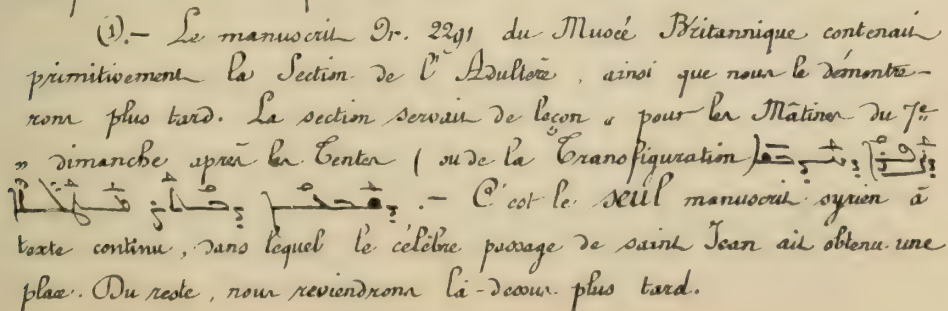 (1).- Le manuscrit Or. 2291 du Musée Britannique contenait
primitivement la Section de l'Adultère, ainsi que nous le démontre-
rons plus tard. La section servait de leçon „ pour les Mâtines du 7e
„ dimanche après les Tentes ( ou de la Transfiguration)
.- C'est le seul manuscrit syrien à
texte continu, dans lequel le célèbre passage de saint Jean ait obtenu une
place. Du reste, nous reviendrons là-dessus plus tard.